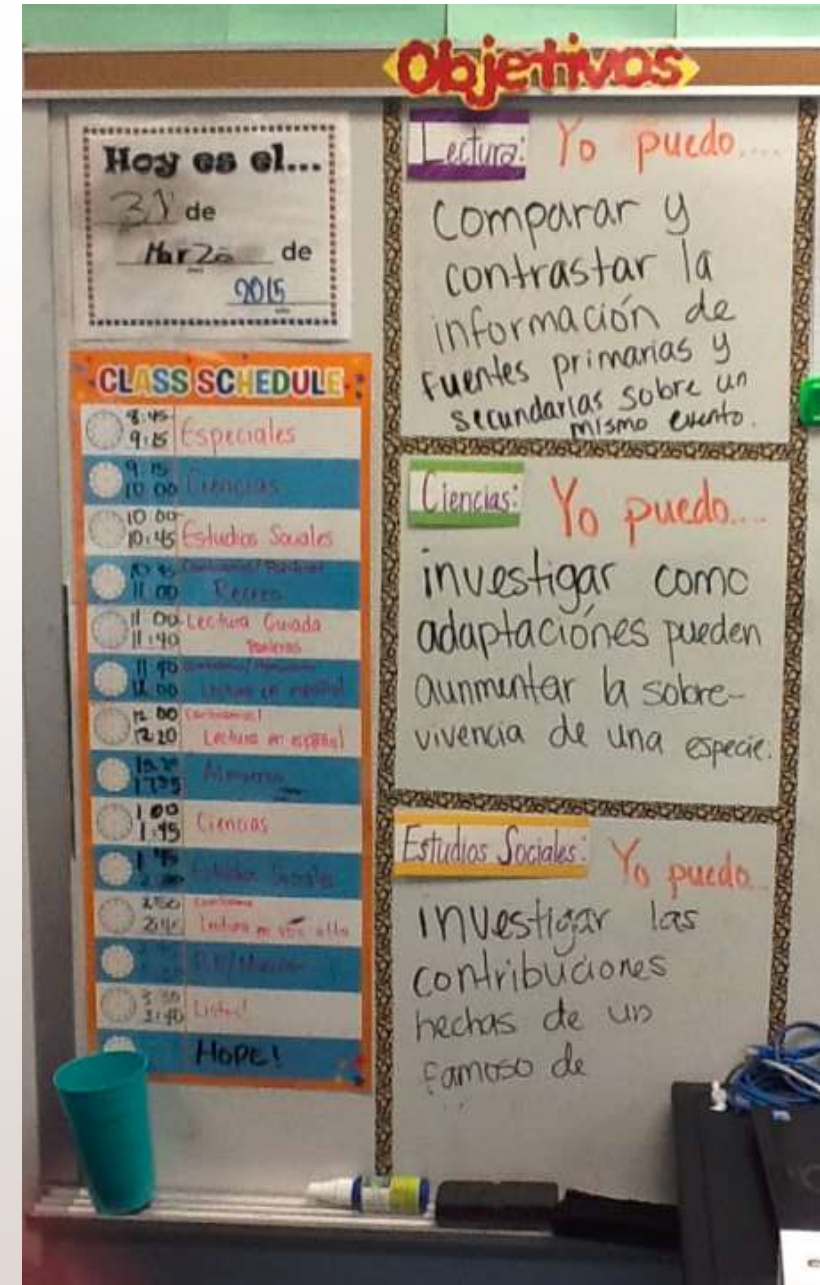 Objetivos
Hoy es el...
31 de
Marzo de
2015
CLASS SCHEDULE
8:45-
9:15 Especiales
9:15
10:00 Ciencias
10:00-
10:45 Estudios Sociales
10:45
11:00 Recreo
11:00- Lectura Guiada
11:40
11:40
12:00 Lectura en español
12:00
12:20 Lectura en español
Almuerzo
1:00
1:45 Ciencias
1:45 Estudios Sociales
2:40 Lectura en voz alta
3:40 Listos!
HOPE!
Lectura: Yo puedo....
Comparar y
contrastar la
información de
fuentes primarias y
secundarias sobre un
mismo evento.
Ciencias: Yo puedo....
investigar como
adaptaciónes pueden
aunmentar la sobre-
vivencia de una especie.
Estudios Sociales: Yo puedo...
investigar las
contribuciones
hechas de un
famoso de